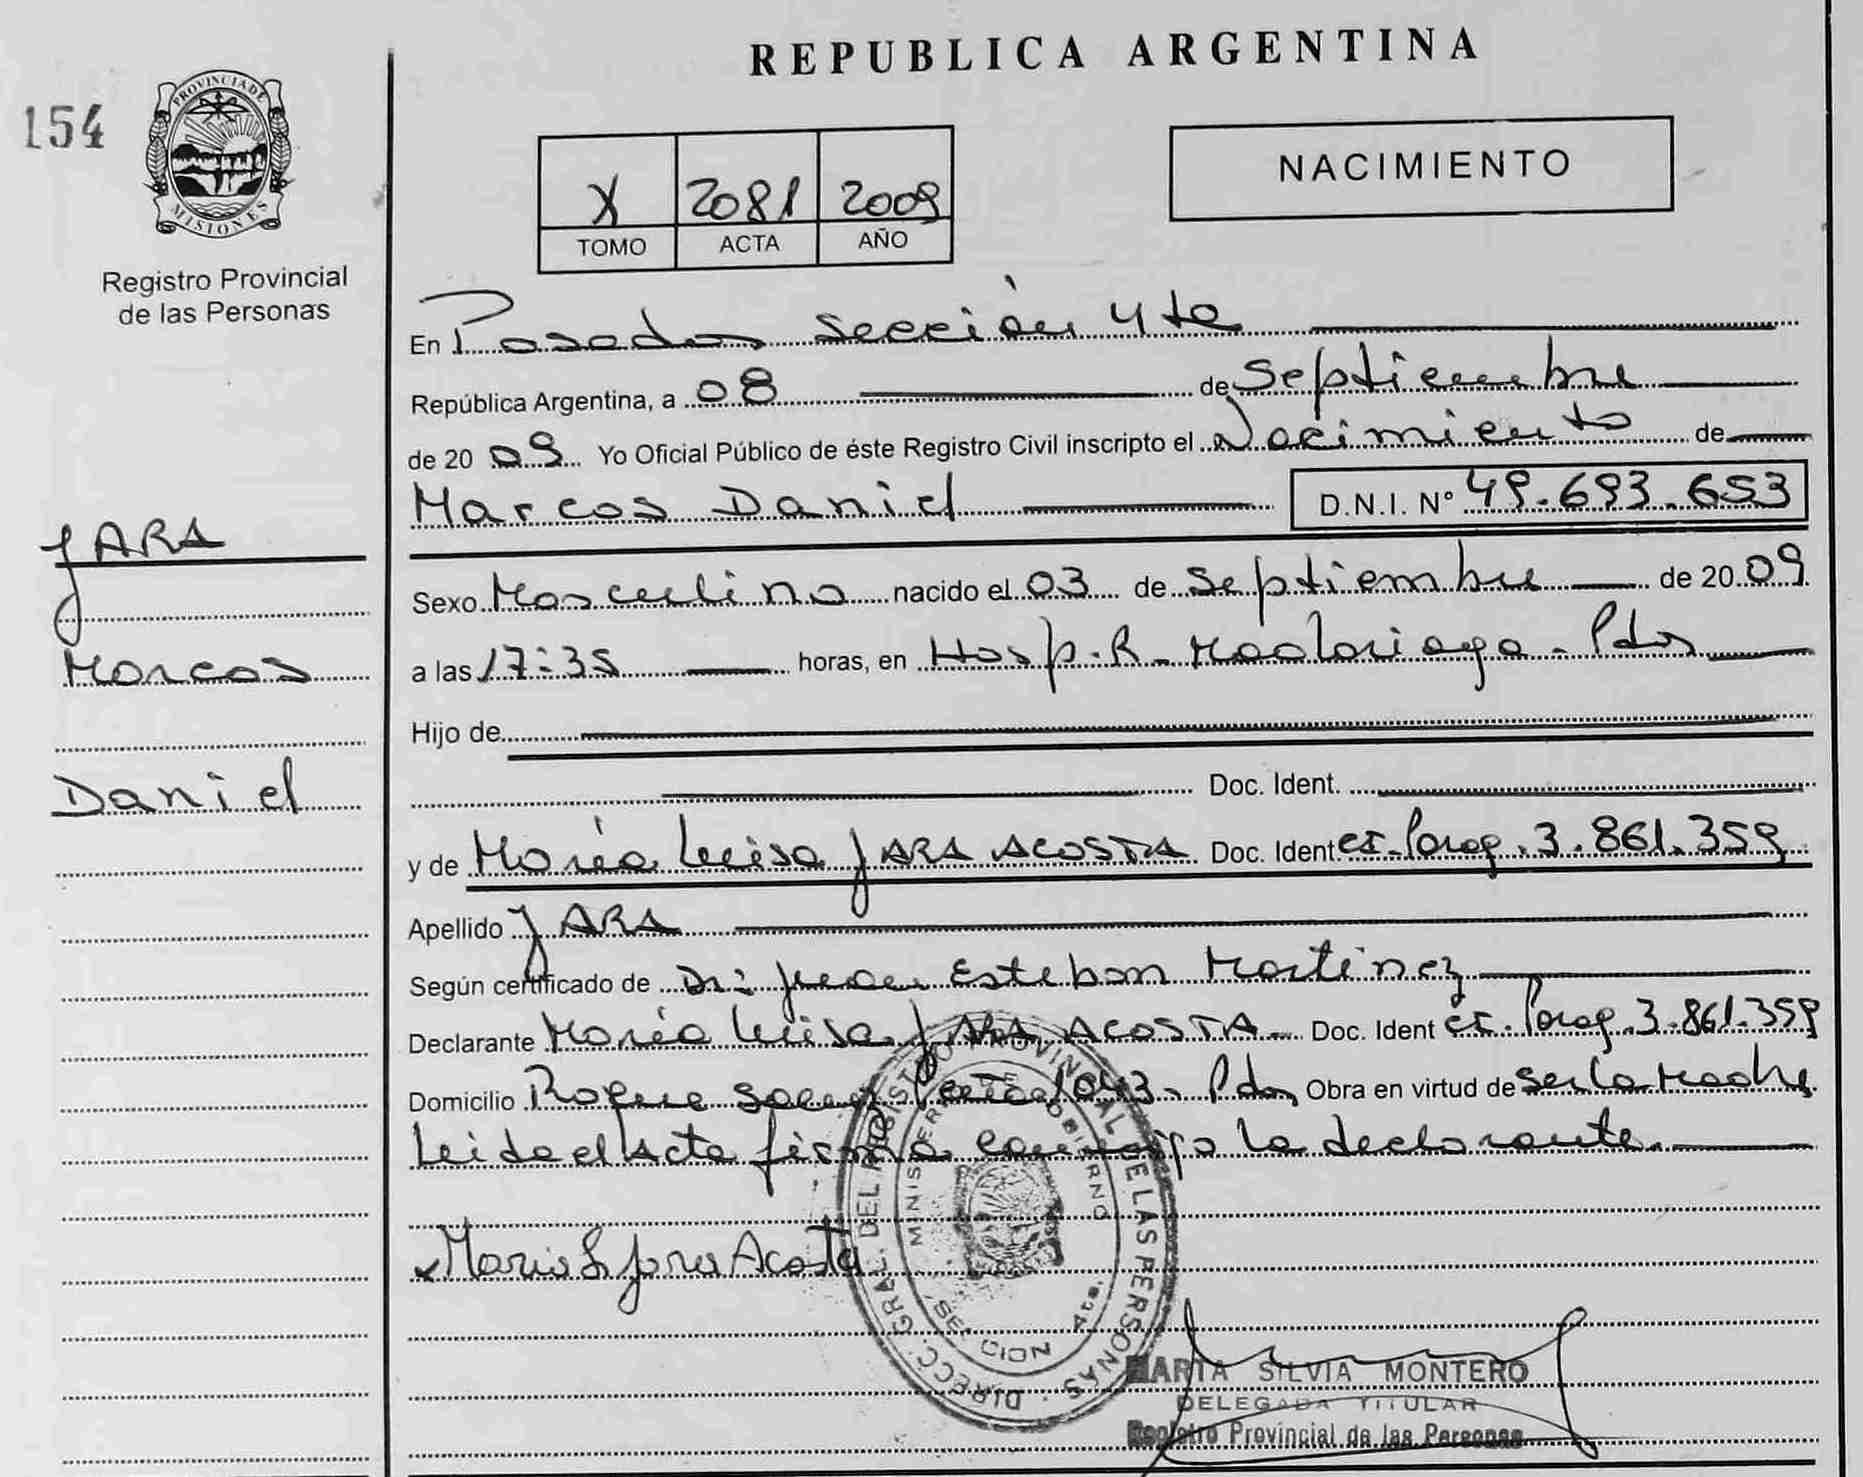 REPUBLICA ARGENTINA
154
PROVINCIA DE
MISIONES
Registro Provincial
de las Personas
X 2081 2009
TOMO ACTA AÑO
NACIMIENTO
En Posadas sección 4ta
República Argentina, a 08 de Septiembre
de 2009 Yo Oficial Público de éste Registro Civil inscripto el Nacimiento de
Marcos Daniel D.N.I. N° 49.693.653
JARA
Marcos
Daniel
Sexo Masculino nacido el 03 de Septiembre de 2009
a las 17:35 horas, en Hosp. R. Madariaga - Pdas
Hijo de
Doc. Ident.
y de María Luisa JARA ACOSTA Doc. Ident. CI. Parag. 3.861.359
Apellido JARA
Según certificado de Dr: Juan Esteban Martinez
Declarante María Luisa JARA ACOSTA Doc. Ident CI. Parag. 3.861.359
Domicilio Roque Saenz Peña 1043 - Pdas Obra en virtud de ser la Madre
Leida el Acta firma conmigo la declarante.
Maria L Jara Acosta
DIRECC. GRAL. DEL REGISTRO PROVINCIAL DE LAS PERSONAS
MINISTERIO DE GOBIERNO
SECCION 4ta.
MARTA SILVIA MONTERO
DELEGADA TITULAR
Registro Provincial de las Personas